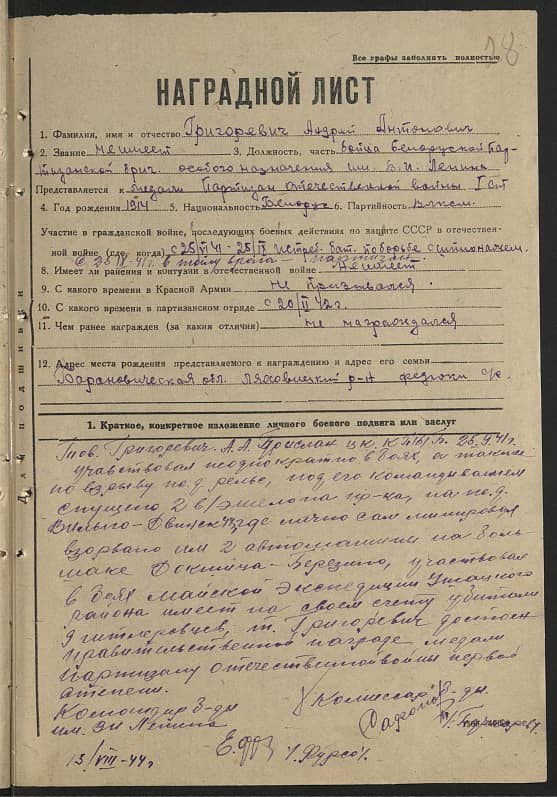 Все графы заполнять полностью
18
НАГРАДНОЙ ЛИСТ
1. Фамилия, имя и отчество Григоревич Андрей Антонович
2. Звание не имеет 3. Должность, часть бойца Белорусской Пар-
тизанской бриг. особого назначения им. В. И. Ленина
Представляется к медали Партизан отечественной войны I ст
4. Год рождения 1914 5. Национальность Белорус 6. Партийность
Участие в гражданской войне, последующих боевых действиях по защите СССР в отечествен-
ной войне (где, когда) с 25/VI 41 - 25/IX истреб. бат. по борьбе с шпионажем.
в тылу врага - партизан.
8. Имеет ли ранения и контузии в отечественной войне Не имеет
9. С какого времени в Красной Армии не призывался
10. С какого времени в партизанском отряде с 20/II 42 г.
11. Чем ранее награжден (за какия отличия) не награждался
12. Адрес места рождения представляемого к награждению и адрес его семьи
Барановическая обл. Ляховицкий р-н
Для подшивки
1. Краткое, конкретное изложение личного боевого подвига или заслуг
Тов. Григоревич А. А. Прислан ЦК КП/б/Б.
участвовал неоднократно в боях, а также
по взрыву жел. рельс, под его командованием
спущено 2 в/эшелона пр-ка, на ж.д.
Вильно-Двинск где лично сам минировал
взорвано им 2 автомашины на боль-
шаке Докшица-Березино, участвовал
в боях майской экспедиции Ушацкого
района имеет на своем счету убитыми
9 гитлеровцев, т. Григоревич достоен
правительственной награде медали
партизану отечественной войны первой
степени.
Командир б-ды Комиссар б-ды
им. ВИ Ленина
13/VIII-44 г. /Фурсо/